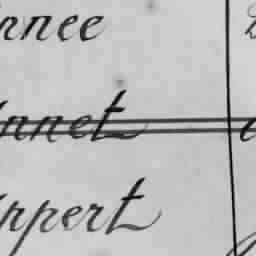 nnee
nnet
ppert